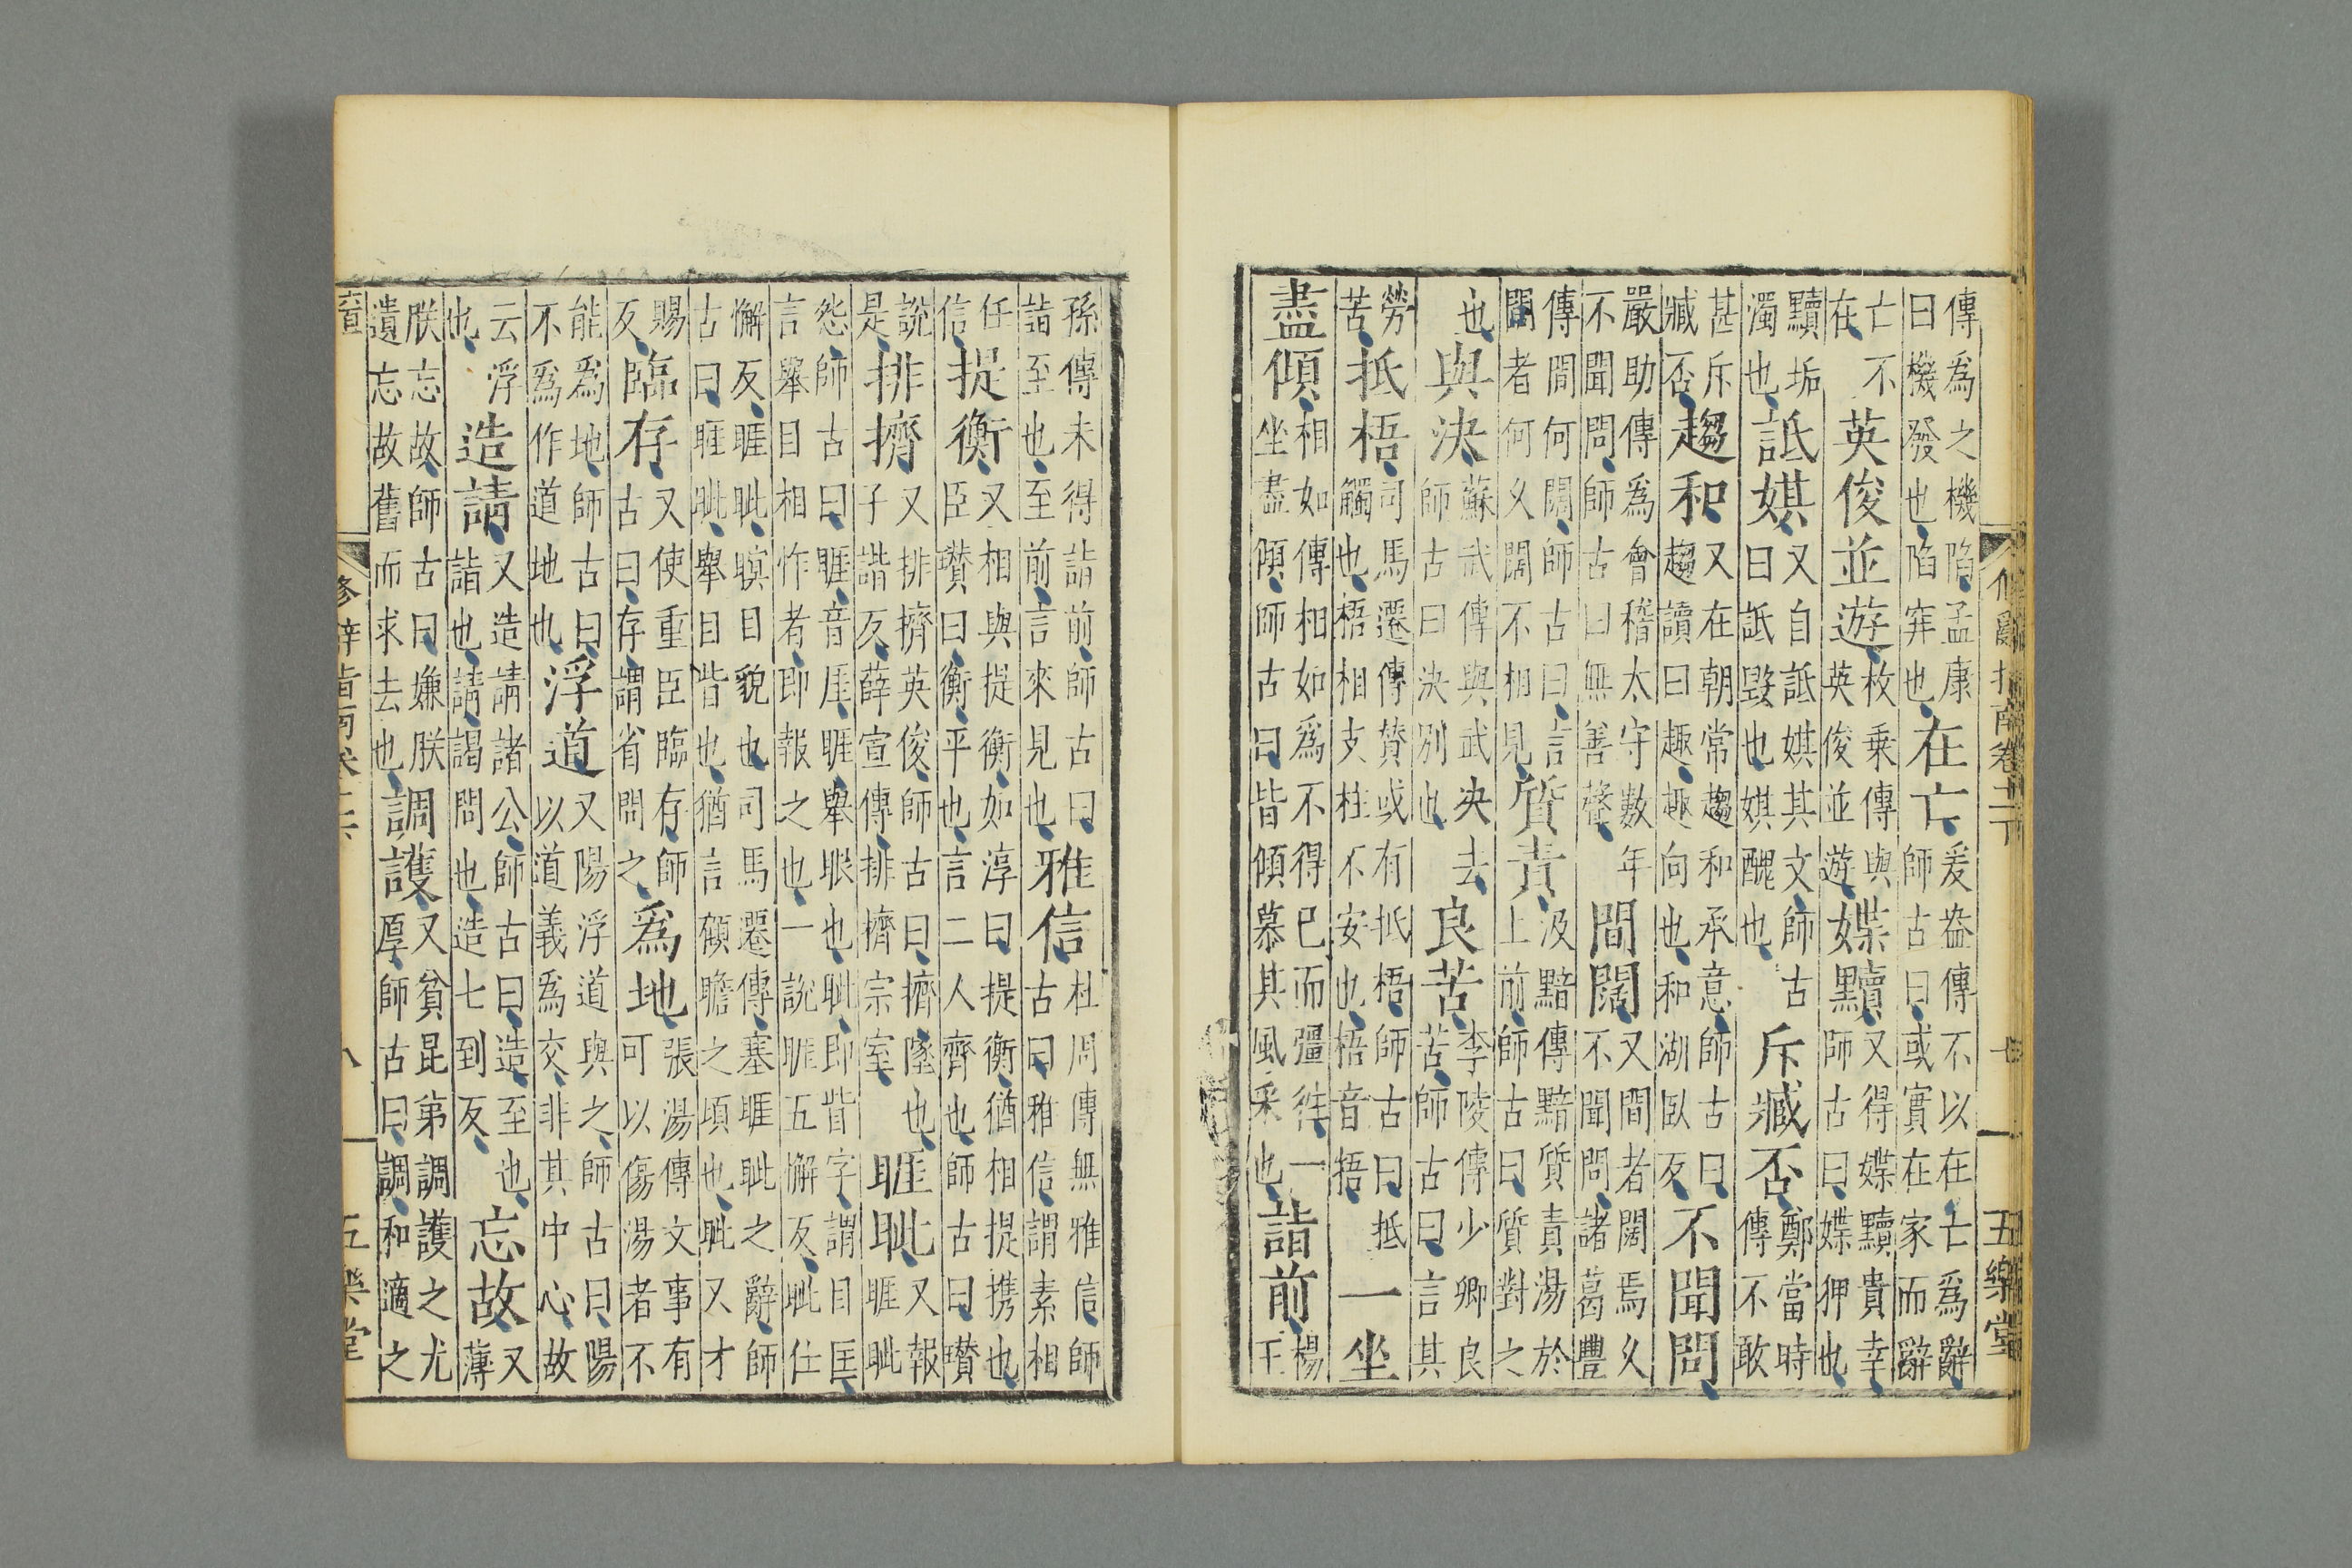 修辭指南卷二下 七 五樂堂
傳爲之機陷孟康曰機發也陷穽也在亡爰盎傳不以在亡爲辭師古曰或實在家而辭
亡不在英俊並遊枚乗傳與英俊並遊媟黷又得媟黷貴幸師古曰媟狎也
黷垢濁也詆娸又自詆娸其文師古曰詆毀也娸醜也斥臧否鄭當時傳不敢
甚斥臧否趨和又在朝常趨和承意師古曰趨讀曰趣趣向也和湖臥反不聞問
嚴助傳爲會稽太守數年不聞問師古曰無善聲間闊又間者闊焉乆不聞問諸葛豐
傳間何闊師古曰言間者何乆闊不相見質責汲黯傳黯質責湯於上前師古曰質對之
也與決蘇武傳與武決去師古曰決別也良苦李陵傳少卿良苦師古曰言其
勞苦抵梧司馬遷傳賛或有抵梧師古曰抵觸也梧相支柱不安也梧音捂一坐
盡傾相如傳相如爲不得已而彊徃一坐盡傾師古曰皆傾慕其風采也詣前楊王
孫傳未得詣前師古曰詣至也至前言來見也雅信杜周傳無雅信師古曰雅信謂素相
任信提衡又相與提衡如淳曰提衡猶相提携也臣瓚曰衡平也言二人齊也師古曰瓚
說是排擠又排擠英俊師古曰擠墜也子諧反薛宣傳排擠宗室睚眦又報睚眦
怨師古曰睚音厓睚舉眼也眦即眥字謂目匡言舉目相忤者即報之也一說睚五懈反眦仕
懈反睚眦瞋目貌也司馬遷傳塞睚眦之辭師古曰睚眦舉目眥也猶言顧瞻之頃也眦又才
賜反臨存又使重臣臨存師古曰存謂省問之爲地張湯傳文事有可以傷湯者不
能爲地師古曰不爲作道地也浮道又陽浮道與之師古曰陽以道義爲交非其中心故
云浮也造請又造請諸公師古曰造至也詣也請謁問也造七到反忘故又薄
朕忘故師古曰嫌朕遺忘故舊而求去也調護又貧昆弟調護之尤厚師古曰調和適之
修辭指南卷二下 八 五樂堂